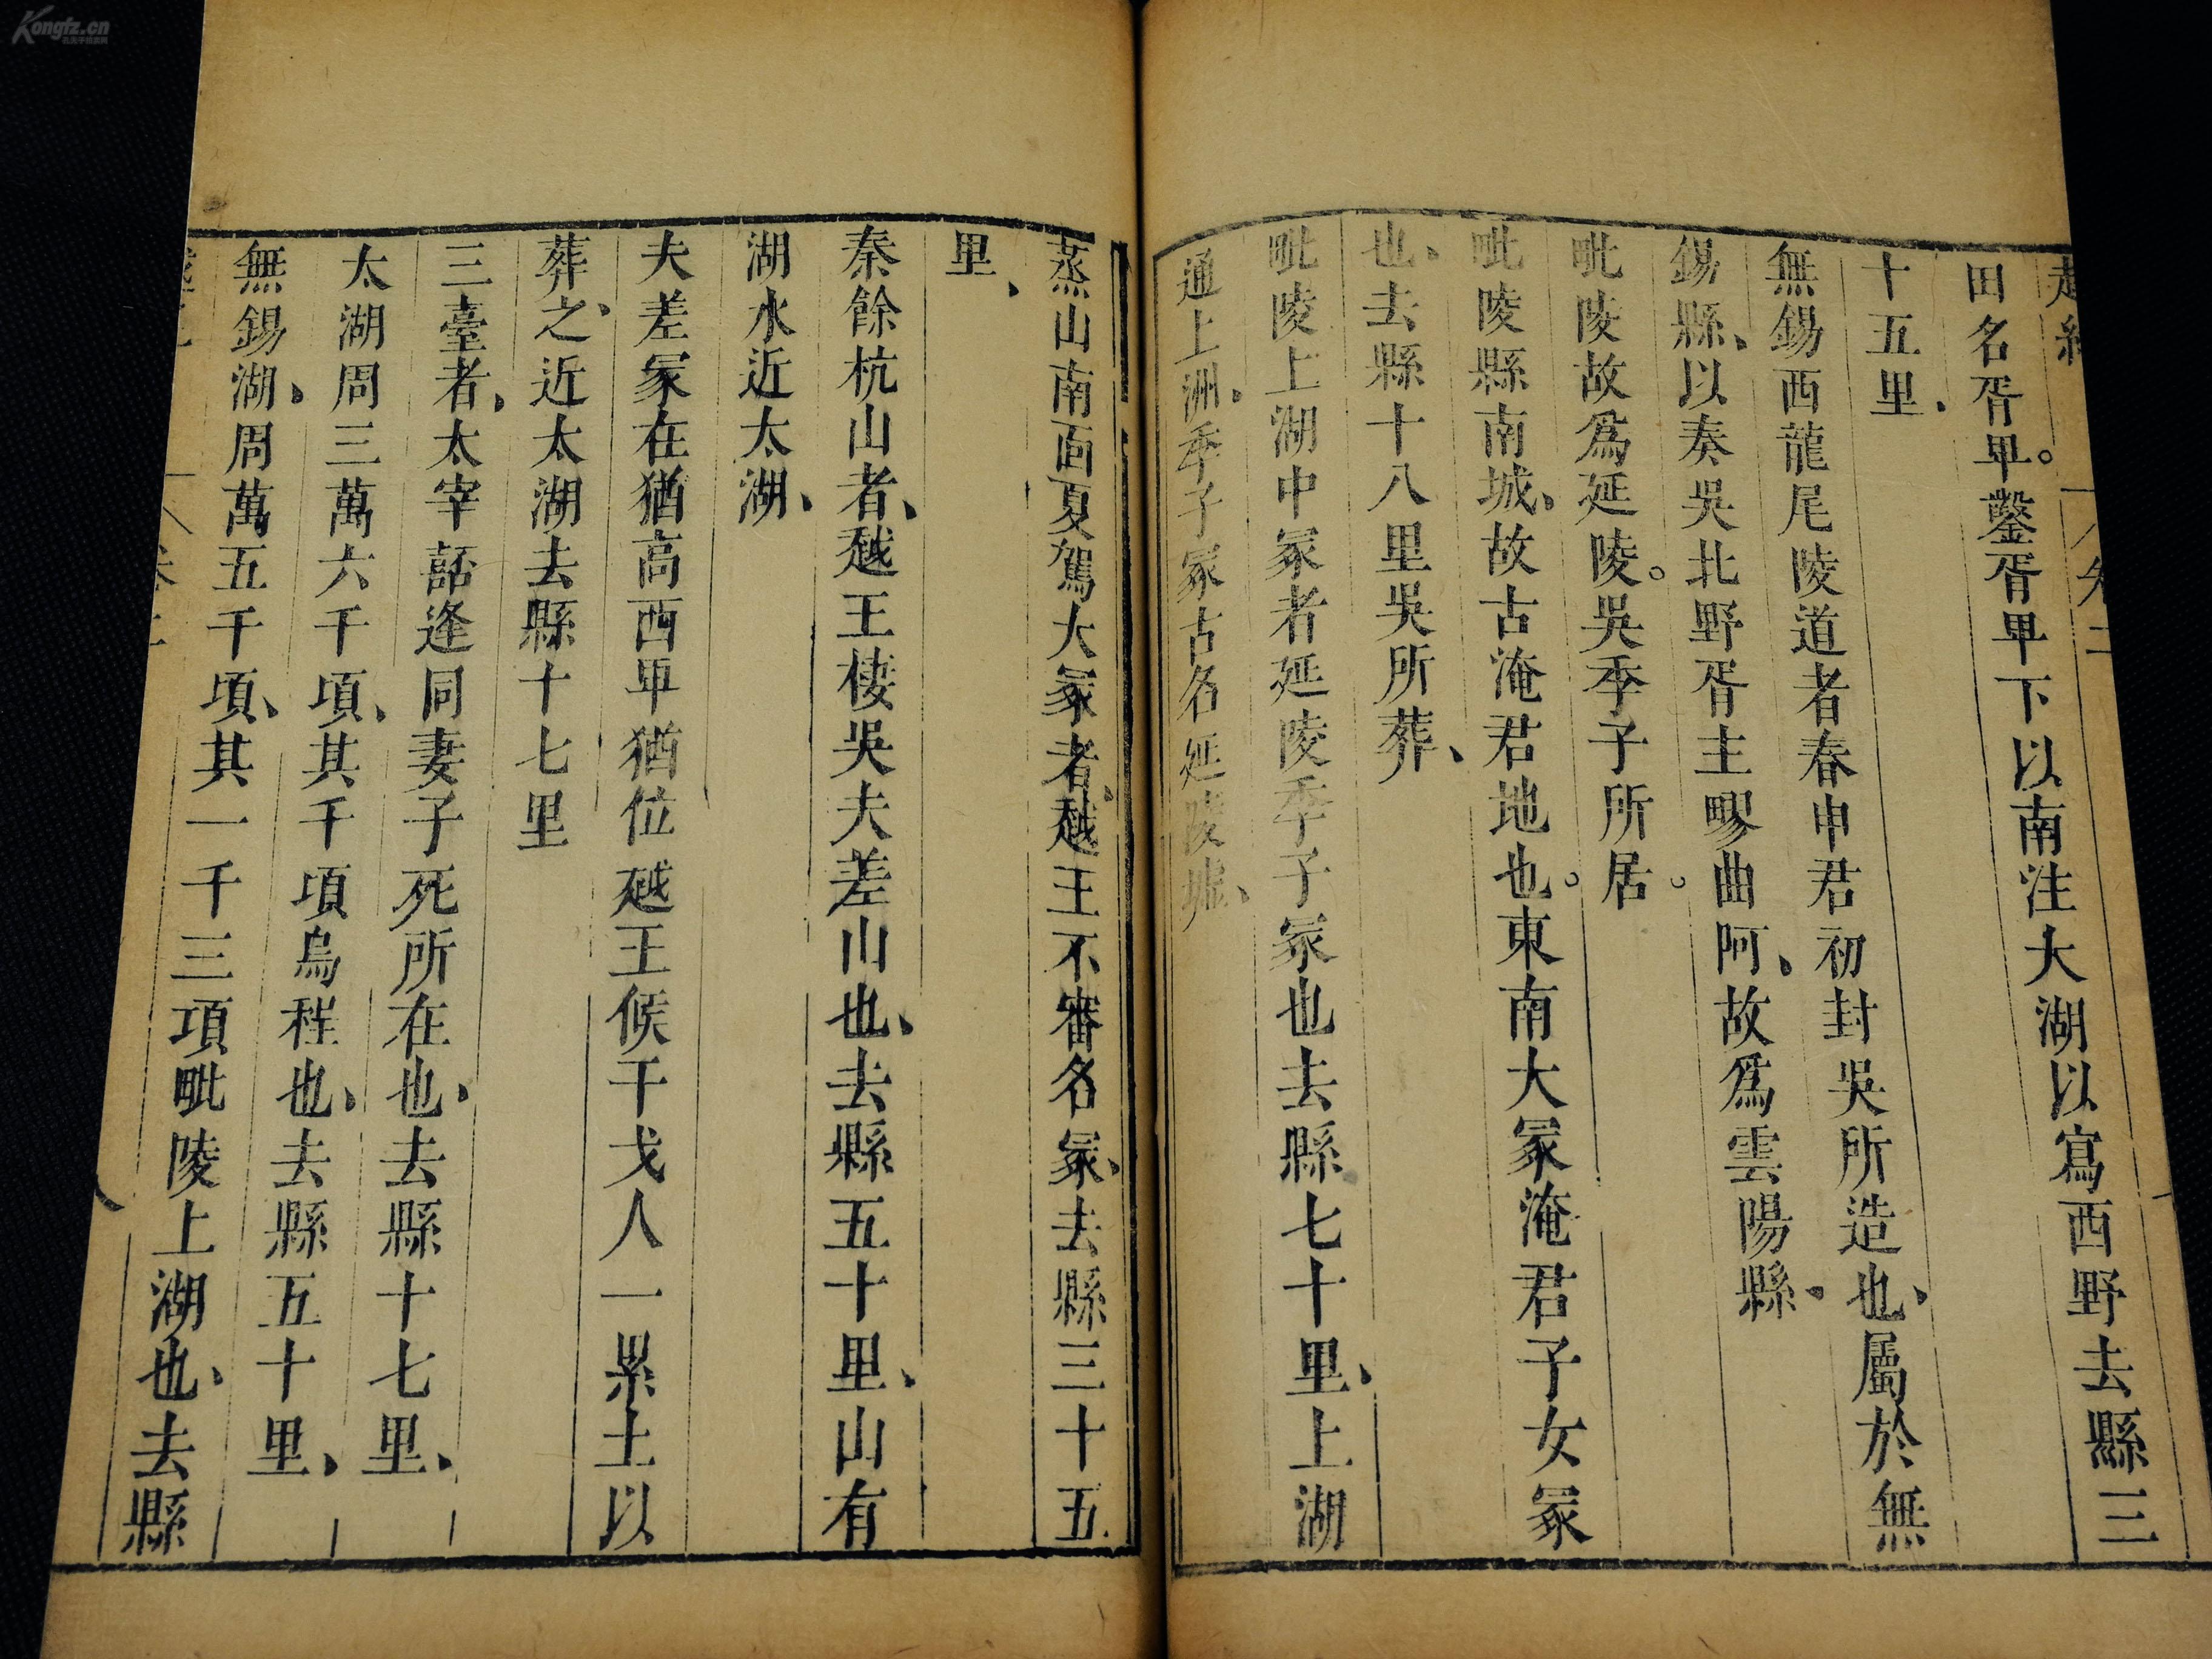 田名胥卑鑿胥卑下以南注大湖以寫西野去縣三
十五里
無錫西龍尾陵道者春申君初封吳所造也屬於無
錫縣以奏吳北野胥主𤲞曲阿故爲雲陽縣
毗陵故爲延陵吳季子所居
毗陵縣南城故古淹君地也東南大冢淹君子女冢
也去縣十八里吳所葬
毗陵上湖中冢者延陵季子冢也去縣七十里上湖
通上洲季子冢古名延陵墟
蒸山南面夏駕大冢者越王不審名冢去縣三十五
里
秦餘杭山者越王棲吳夫差山也去縣五十里山有
湖水近太湖
夫差冢在猶高西卑猶位越王候干戈人一累土以
葬之近太湖去縣十七里
三臺者太宰嚭逢同妻子死所在也去縣十七里
太湖周三萬六千項其千項烏程也去縣五十里
無錫湖周萬五千項其一千三項毗陵上湖也去縣
Kongfz.cn